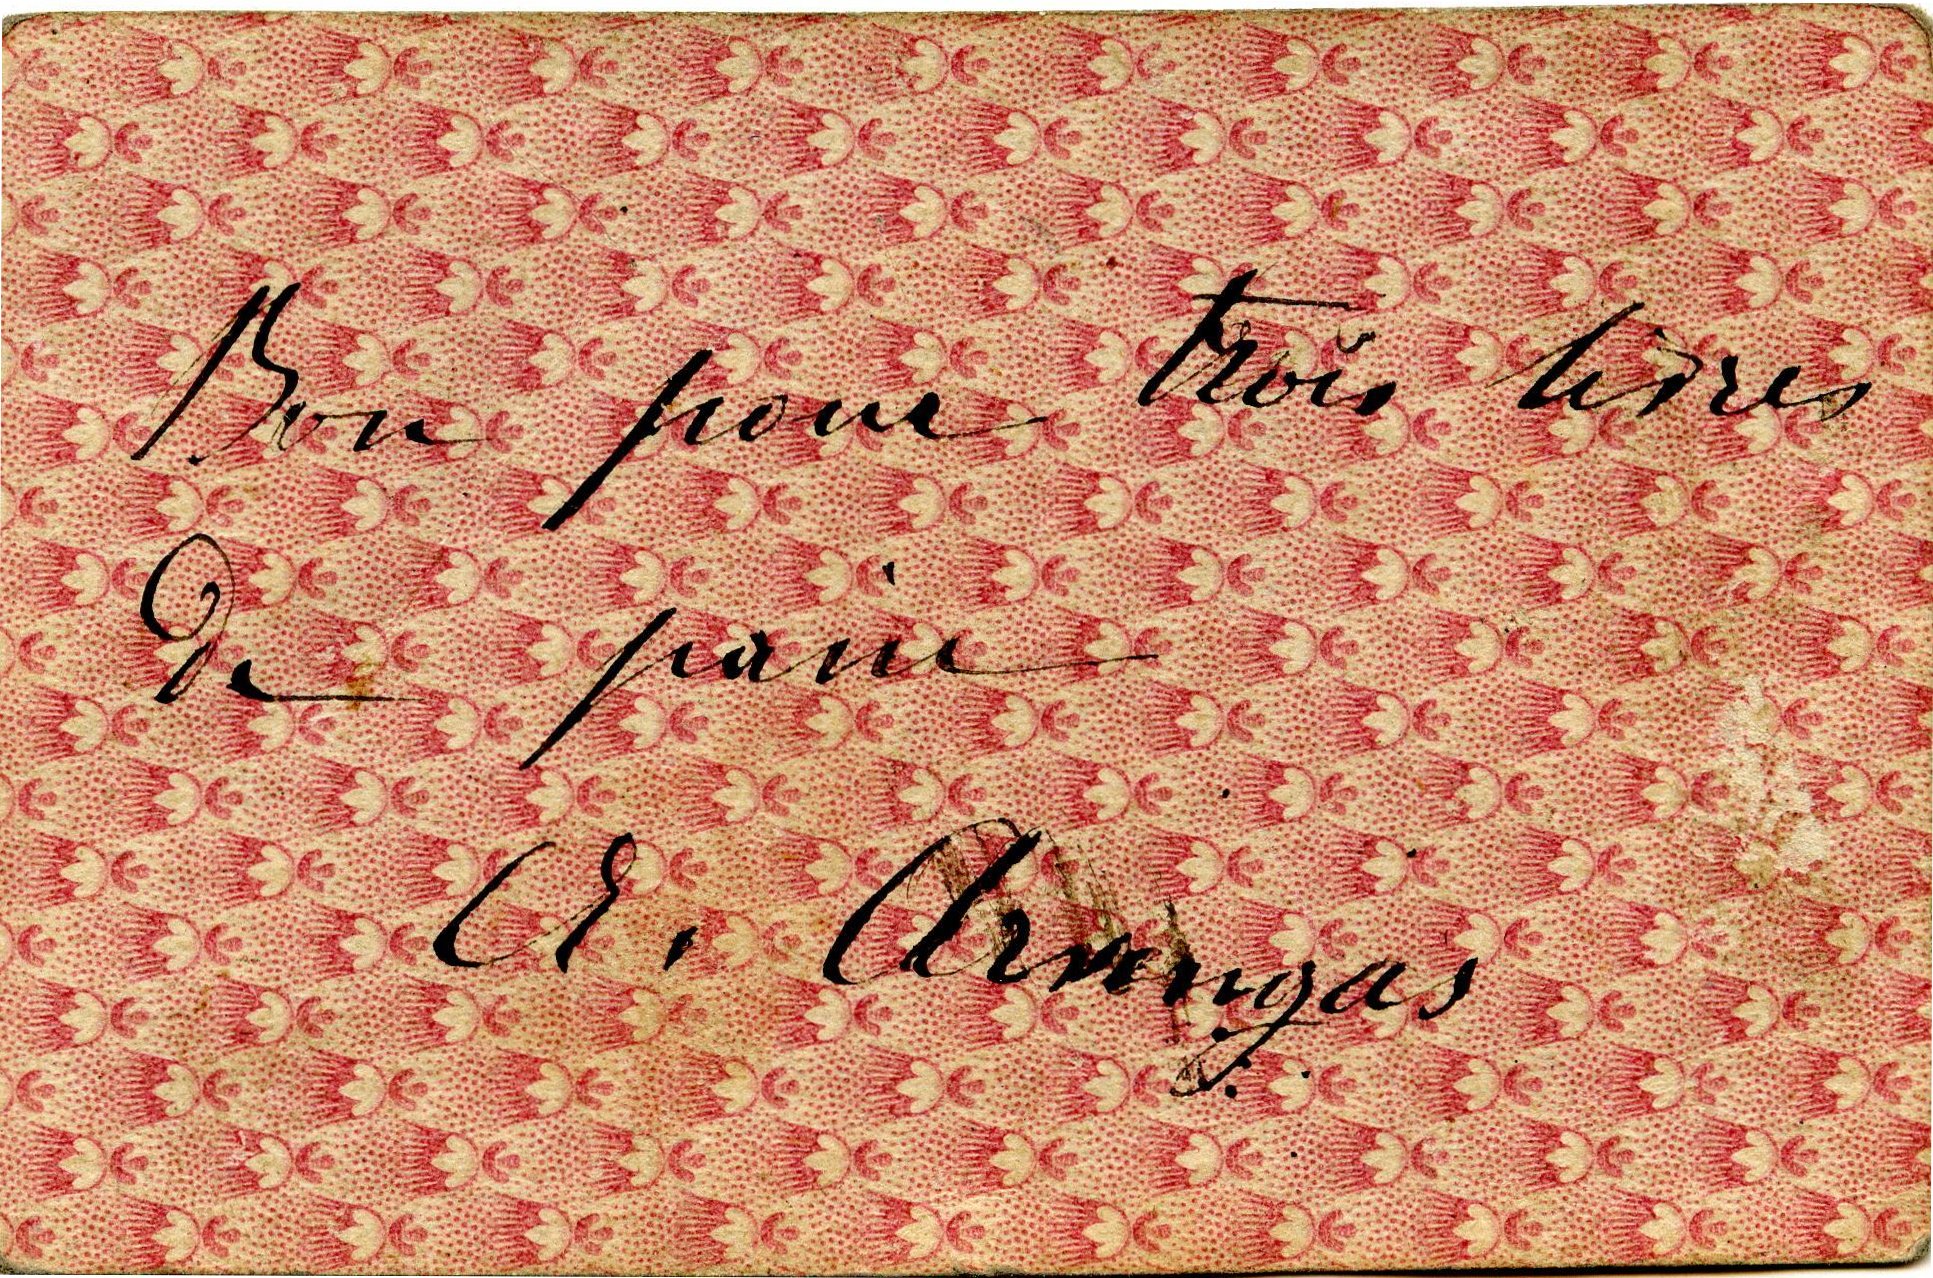 Bon pour trois livres
de pain
A. Armengas